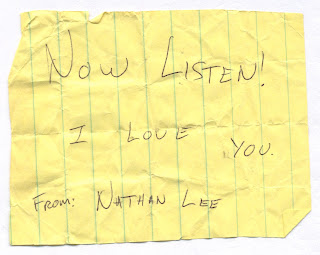 NOW LISTEN!
I LOVE YOU.
FROM: NATHAN LEE